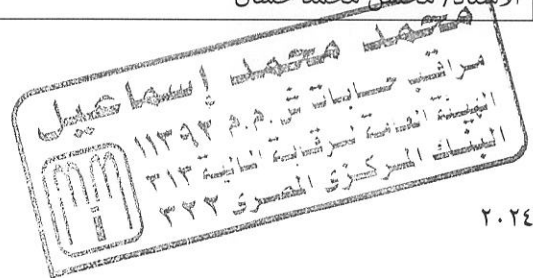 الأستاذ/ محمد حسان
محمد محمد إسماعيل
مراقب حسابات س.م.م ١١٣٩٣
الهيئة العامة للرقابة المالية ٢١٣
البنك المركزى المصرى ٣٢٢
٢٠٢٤